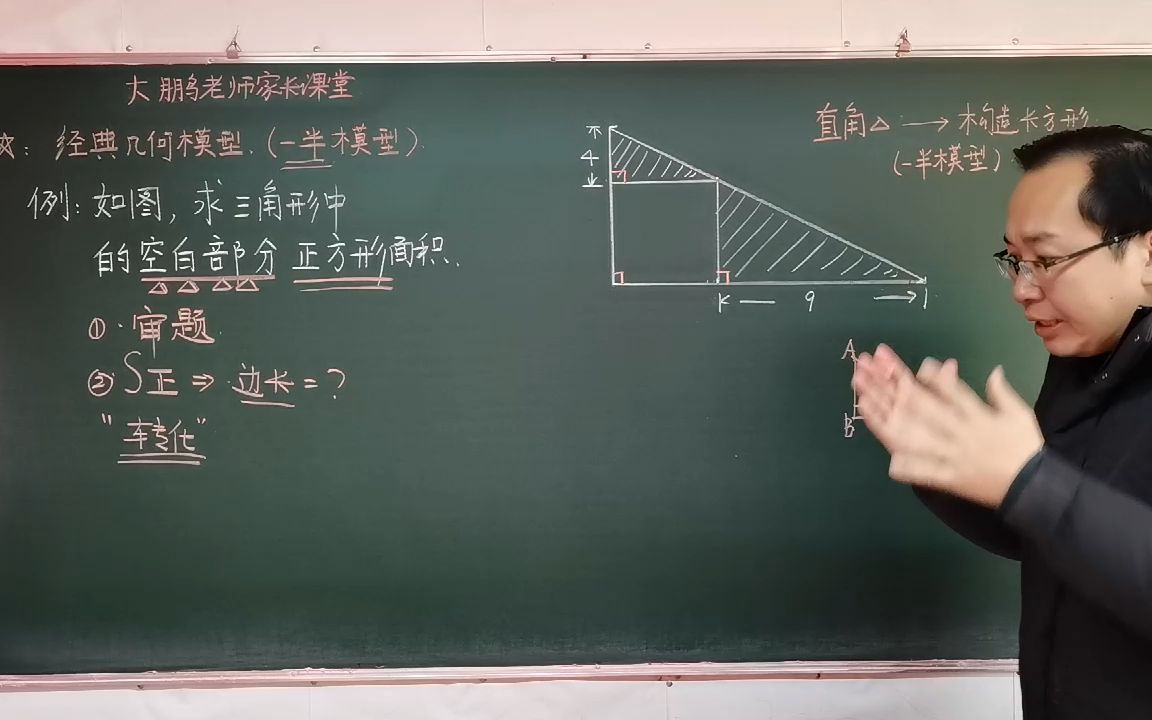 大鹏老师家长课堂
☆：经典几何模型．(一半模型)．
例：如图，求三角形中
的空白部分 正方形面积．
①．审题．
② S正 ⇒ 边长 = ?
"转化"
4
9
直角△ → 构造长方形．
(一半模型)
A
B